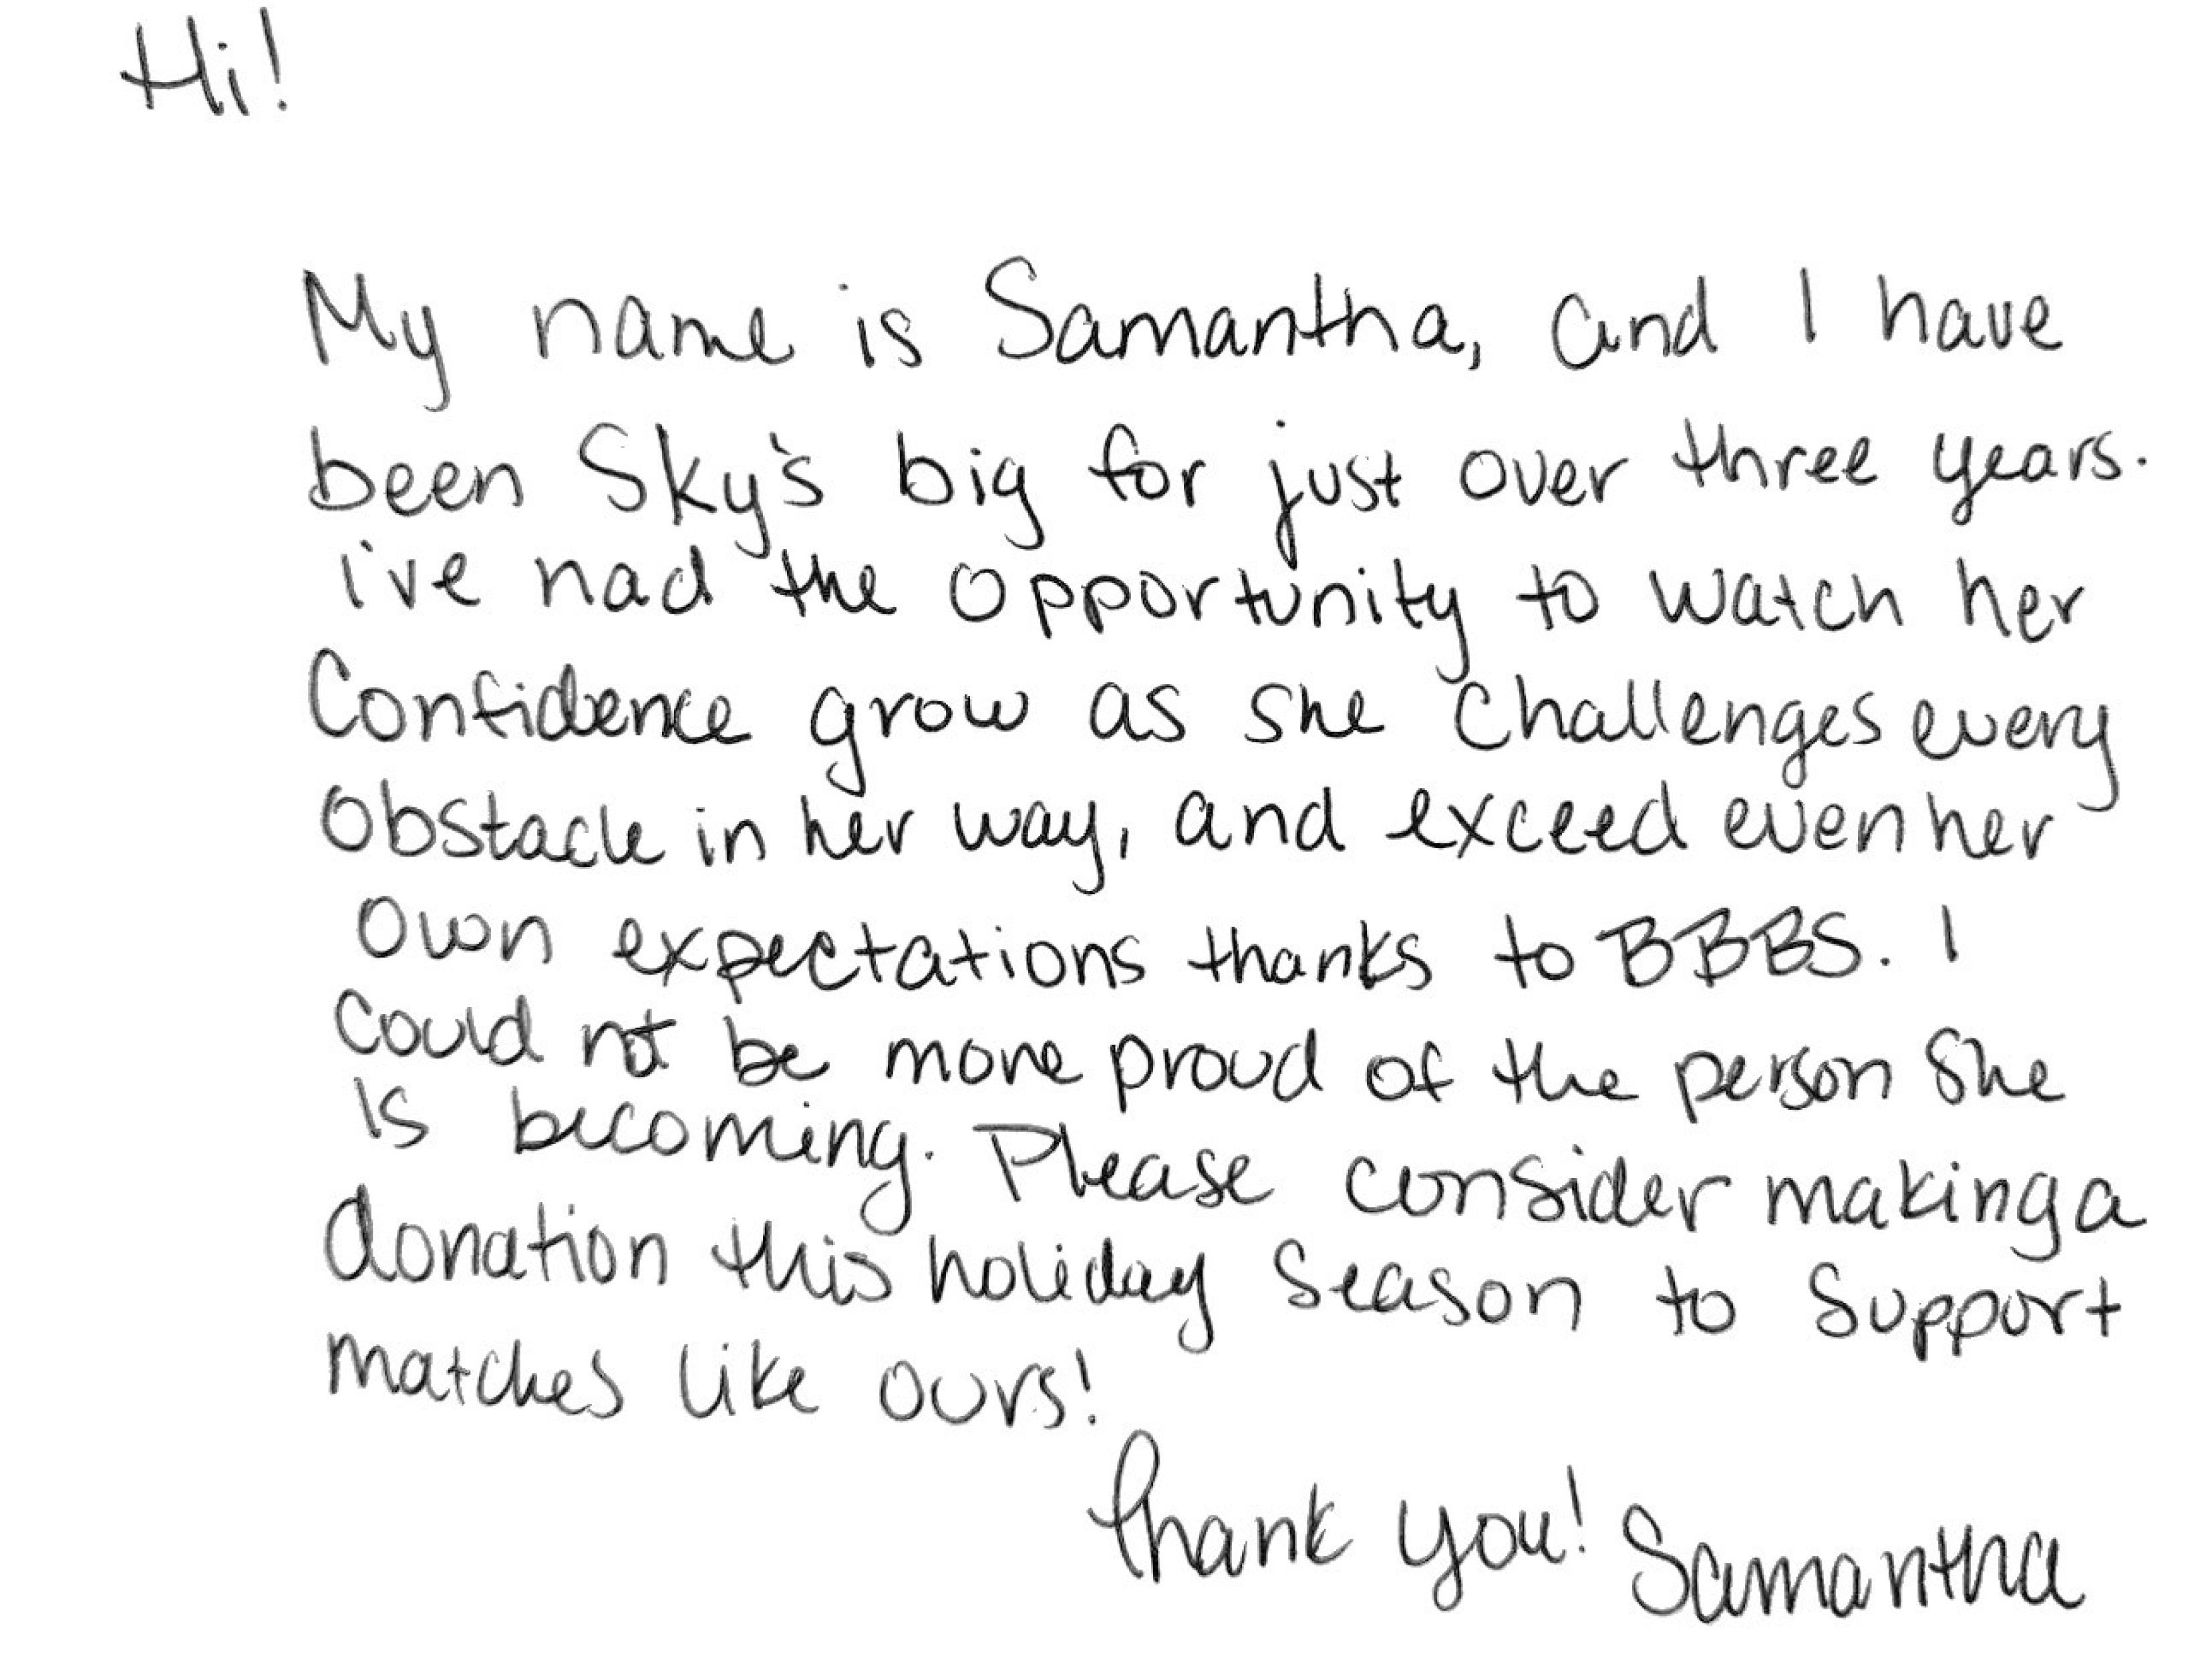 Hi!
My name is Samantha, and I have
been Sky's big for just over three years.
I've had the opportunity to watch her
Confidence grow as she challenges every
Obstacle in her way, and exceed even her
Own expectations thanks to BBBS. I
Could not be more proud of the person she
is becoming. Please consider making a
donation this holiday season to support
matches like ours!
Thank you! Samantha